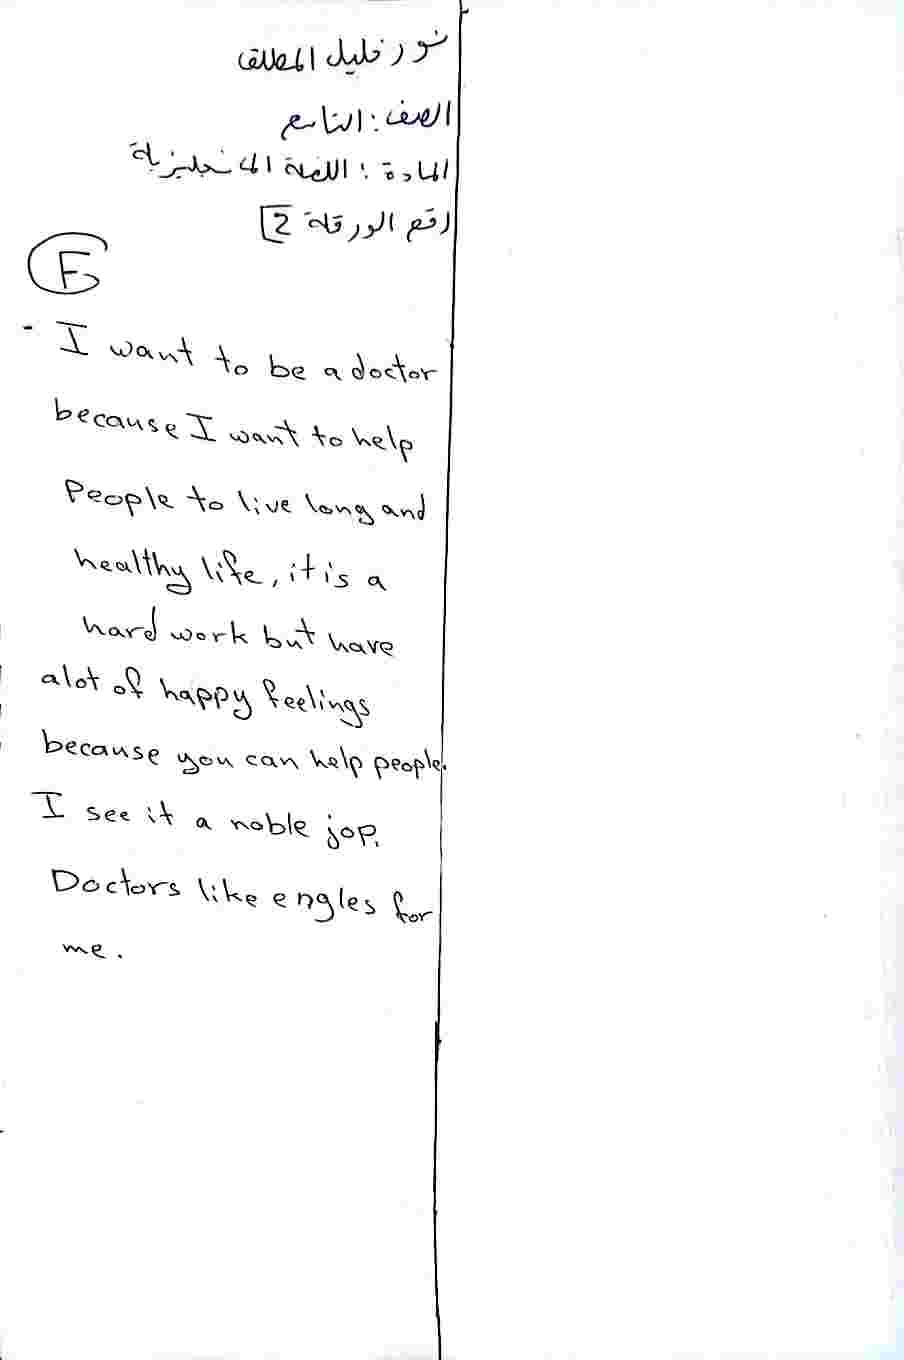 نور خليل المطلق
الصف : التاسع
المادة : اللغة الإنجليزية
رقم الورقة 2
F
- I want to be a doctor
because I want to help
People to live long and
healthy life, it is a
hard work but have
alot of happy feelings
because you can help people.
I see it a noble jop.
Doctors like engles for
me.